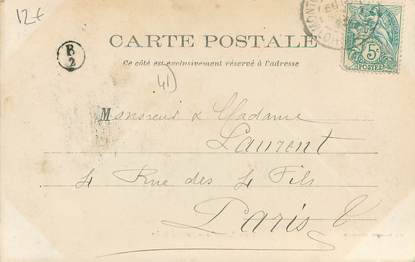 12€
B
2
CARTE POSTALE
Ce côté est exclusivement réservé à l'adresse
41)
Monsieur & Madame
Laurent
4 Rue des 4 Fils
Paris
5c
POSTES